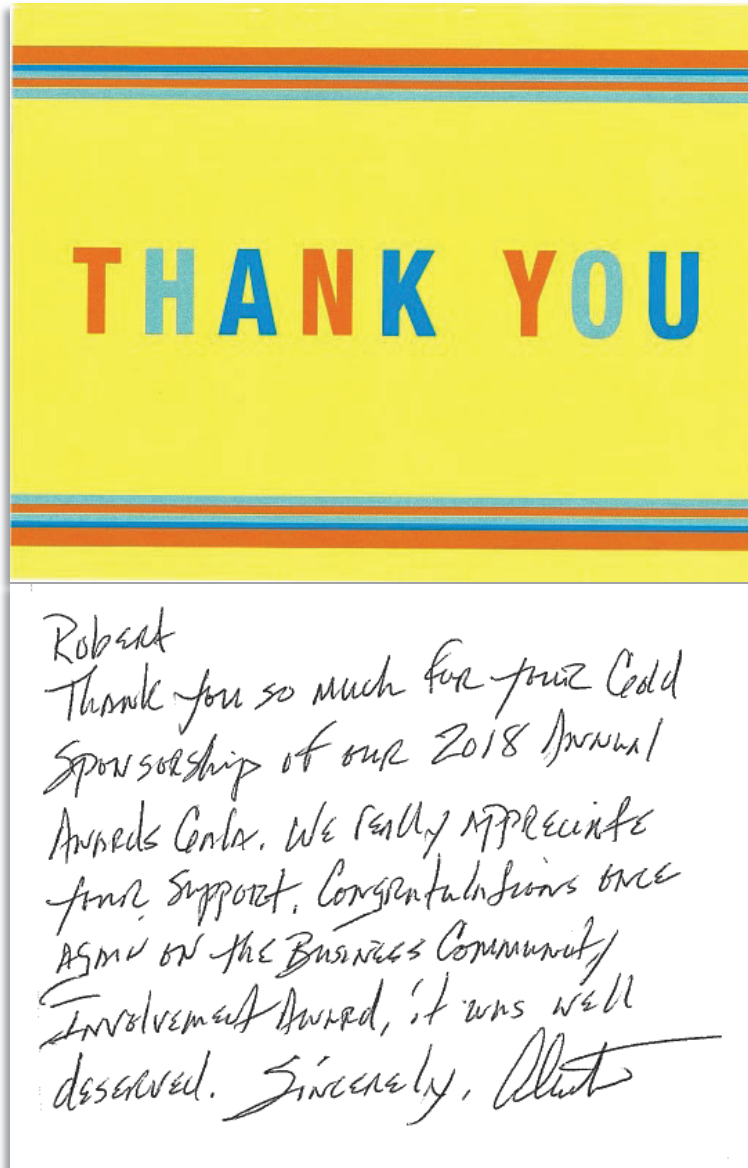 THANK YOU
Robert
Thank you so much for your Gold
Sponsorship of our 2018 Annual
Awards Gala. We really appreciate
your support. Congratulations once
again on the Business Community
Involvement Award, it was well
deserved. Sincerely,